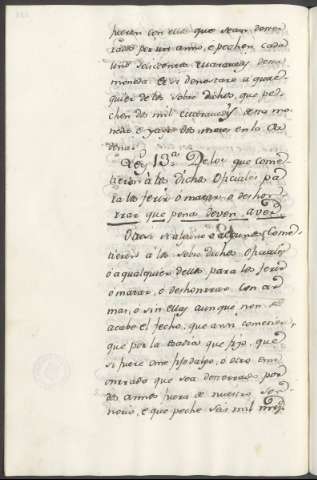 fueren con ellos que sean dester
rados por un anno, e pechen cada
uno seiscientos maravedis desta
moneda e si denostare a qual
quier de los sobre dichos, que pe
chen dos mil maravedis desta mo
neda e yaga dos meses en la ca
dena.
Ley 13.a De los que come
tieren à los dichos Oficiales pa
ra los ferir o matar, o deshon
rrar que pena deven aver.
Otrosi si alguno o algunos come
tieren à los sobre dichos Oficiales
o a qualquier dellos para los ferir
o matar, o deshonrrar con ar
mas, o sin ellas aunque non
acabe el fecho, que aran comenzo,
que por la osadia que fizo, que
si fuere ome fijodalgo, o otro ome
onrrado que sea desterrado por
dos annos fuera de nuestro Seño
rio, e que peche seis mil mrs.